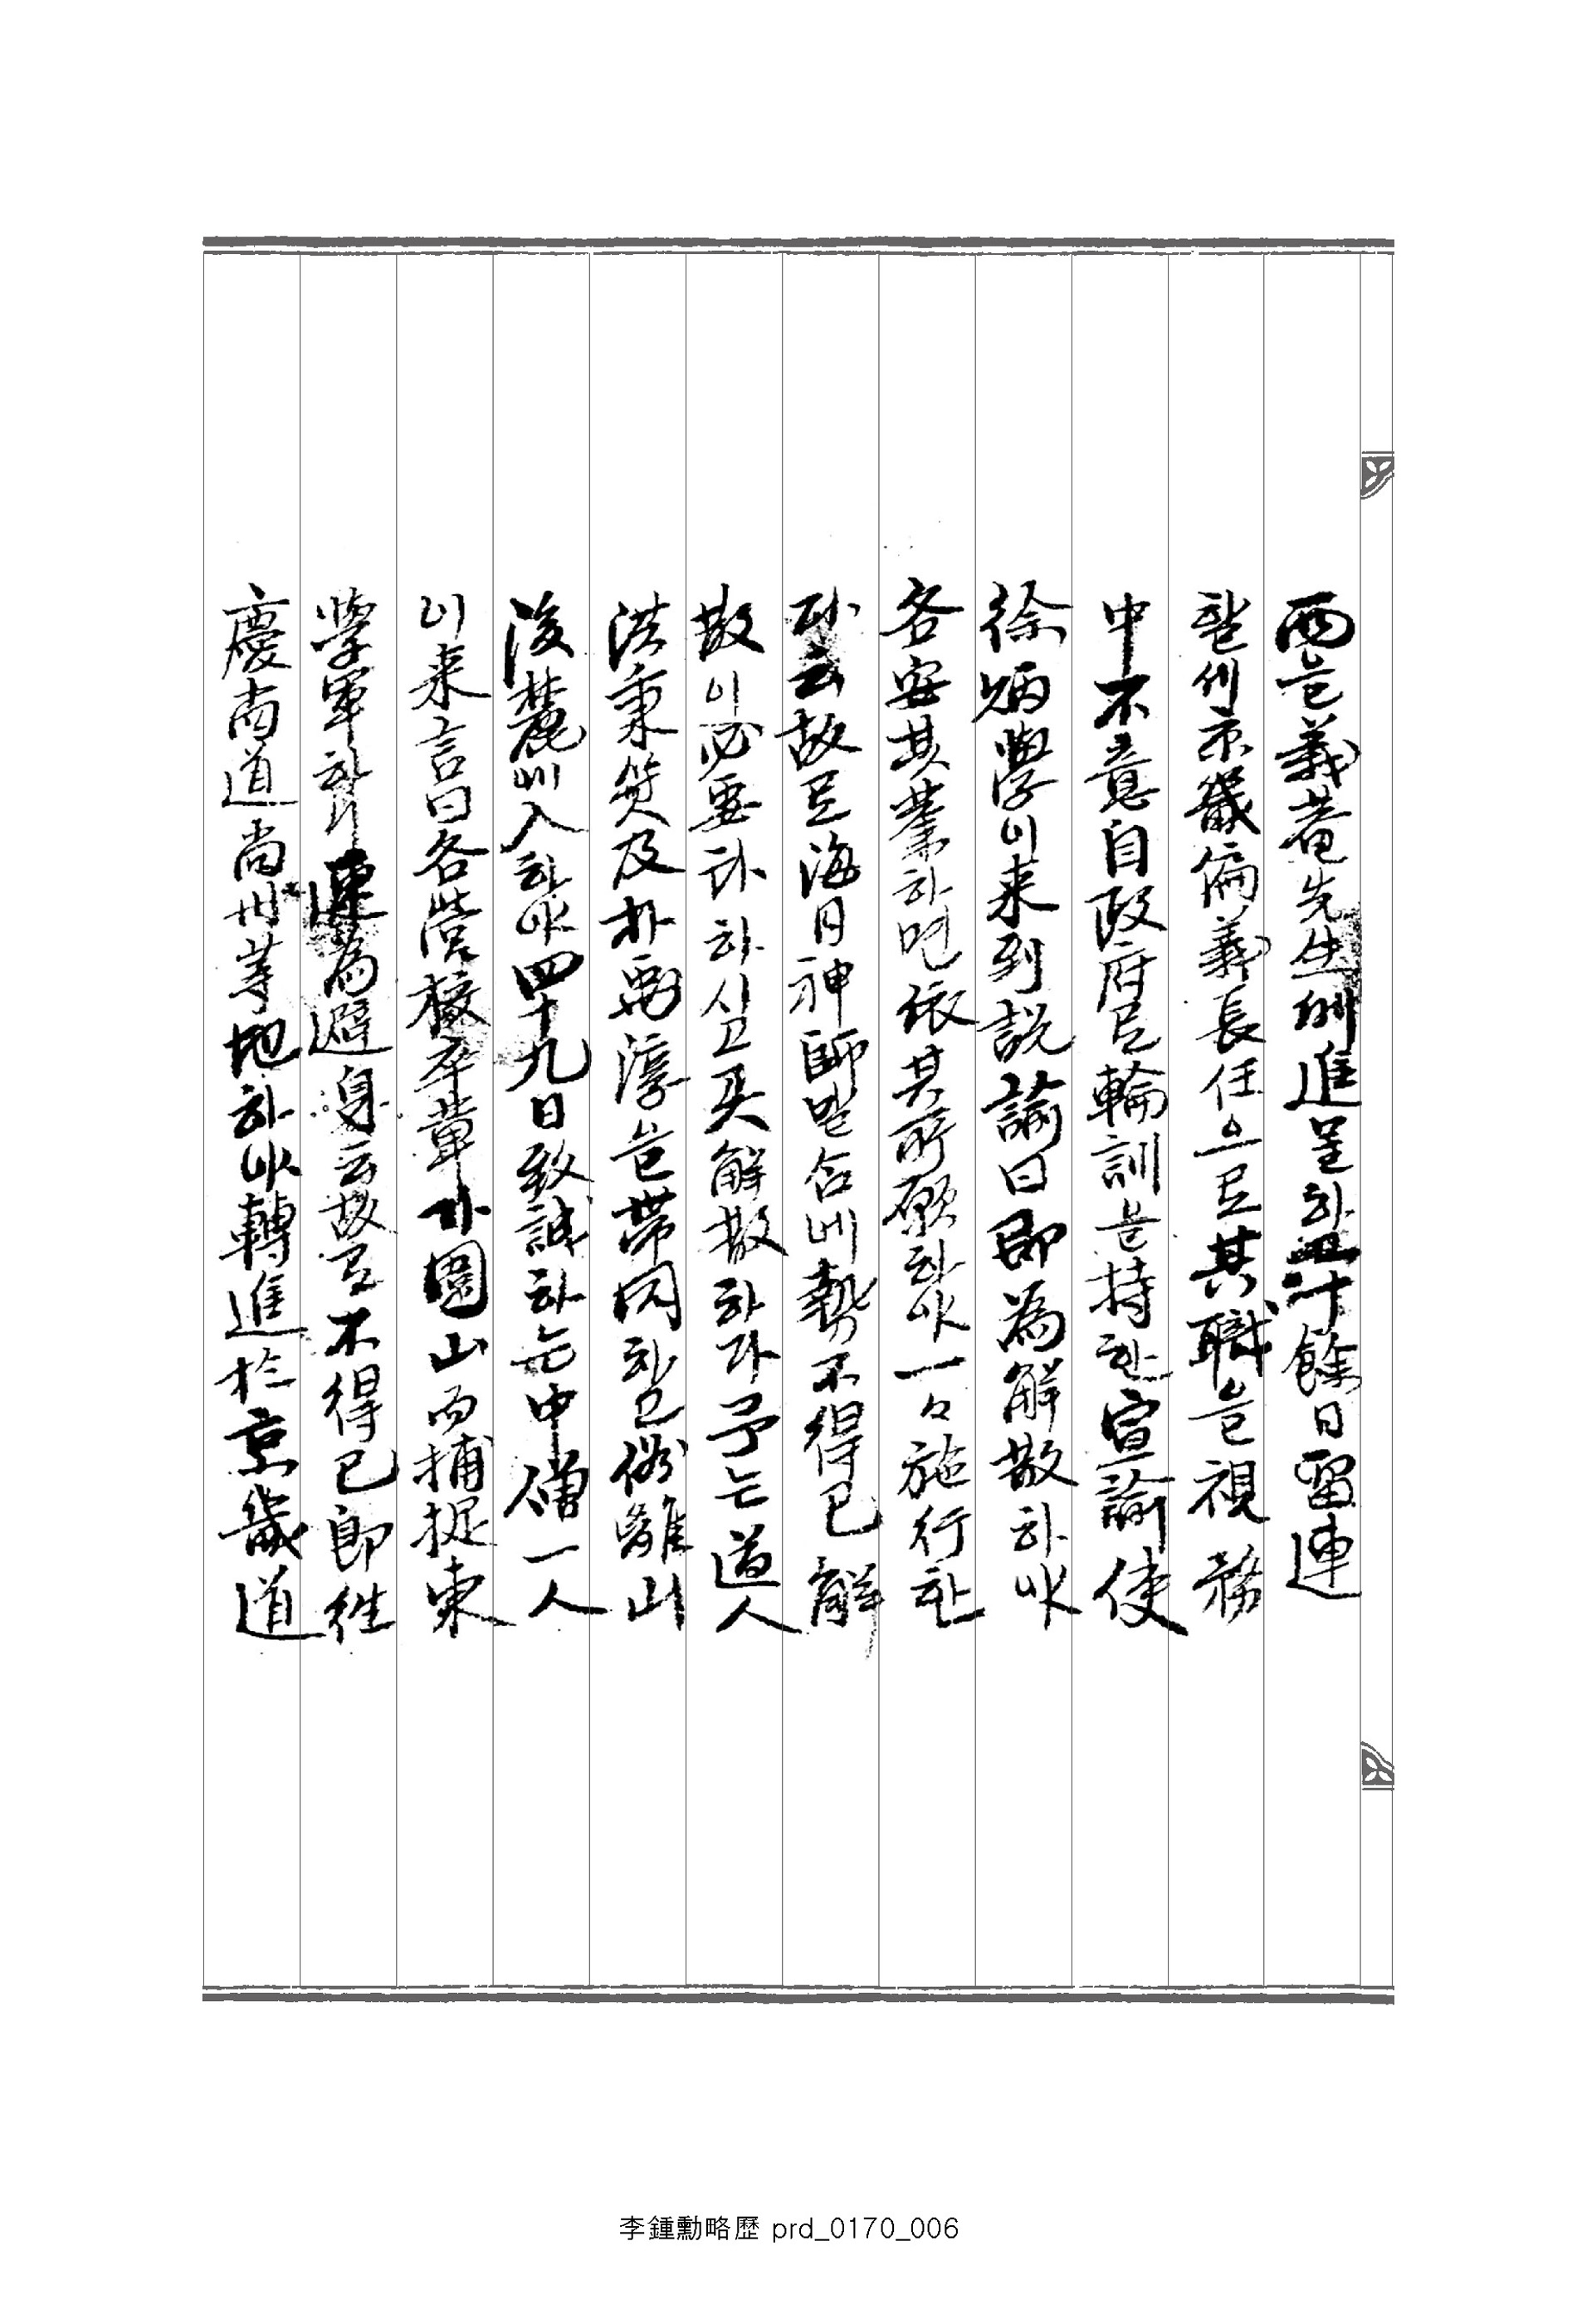 雨를義菴先生게進呈하고十餘日留連
할시京畿偏義長任으로其職을視務
中不意自政府로輪訓을持한宣諭使
徐炳學이来到說諭曰即為解散하야
各安其業하면依其所願하야一々施行한
다云故로海月神師말合에勢不得已解
散이必要타하시고又解散하라予는道人
洪秉箕及朴寅浩을帶同하고俗離山
後麓에入하야四十九日致誠하는中僧一人
이来言曰各營校卒輩가圍山而捕捉東
學軍하니速為避身云故로不得已即往
慶尚道尚州等地하야轉進於京畿道
李鍾勳略歷 prd_0170_006